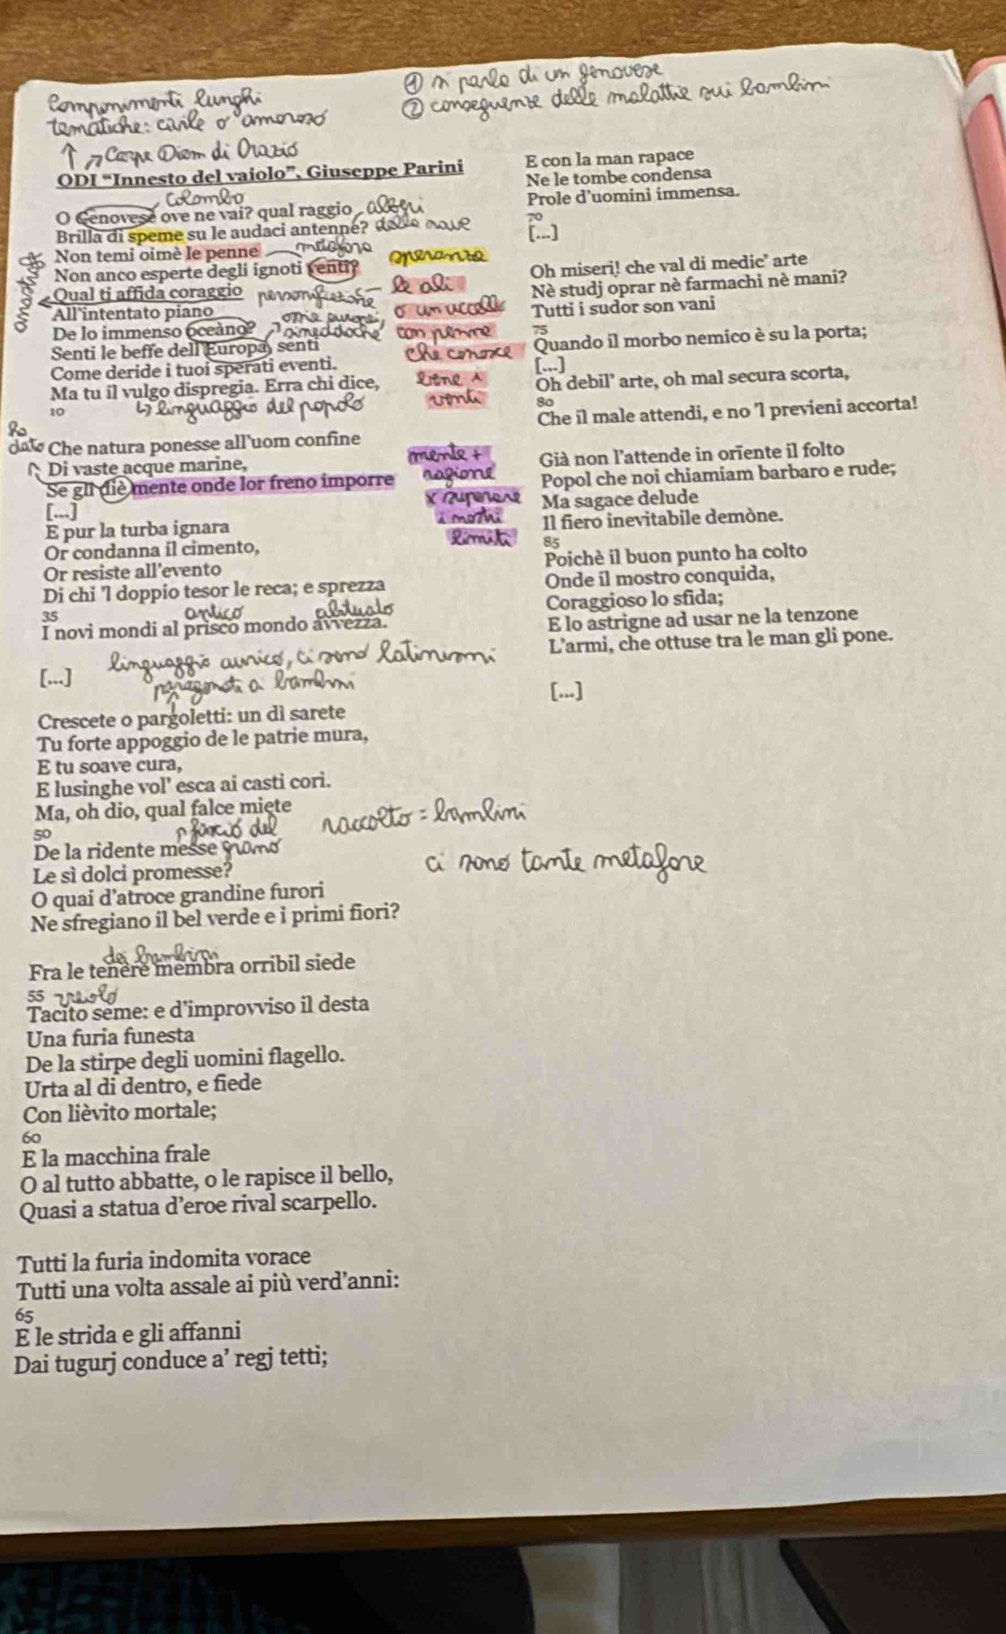 Componimenti lunghi
tematiche: civile o amoroso
① si parla di un genovese
② conseguenze delle malattie sui bambini
↑ ↗ Carpe Diem di Orazio
ODI “Innesto del vaiolo”, Giuseppe Parini
Colombo
O Genovese ove ne vai? qual raggio alberi
Brilla di speme su le audaci antenne? della nave
Non temi oimè le penne metafora speranza
Non anco esperte degli ignoti venti?
anastrofe
Qual ti affida coraggio personificazione
All'intentato piano
De lo immenso oceàno? sineddoche
Senti le beffe dell'Europa, senti
Come deride i tuoi sperati eventi.
le ali
o un uccello
con penne
che conosce
bene i
venti
Ma tu il vulgo dispregia. Erra chi dice,
10 ↳ linguaggio del popolo
Ha
dato Che natura ponesse all'uom confine
Di vaste acque marine,
Se gli diè mente onde lor freno imporre
mente +
ragione
x superare
i nostri
limiti
[...]
E pur la turba ignara
Or condanna il cimento,
Or resiste all'evento
Di chi 'l doppio tesor le reca; e sprezza
35 antico abituato
I novi mondi al prisco mondo avvezza.
linguaggio aulico, ci sono latinismi
[...]
paragonati a bambini
Crescete o pargoletti: un dì sarete
Tu forte appoggio de le patrie mura,
E tu soave cura,
E lusinghe vol' esca ai casti cori.
Ma, oh dio, qual falce miete
50 raccolto = bambini
De la ridente messe grano
Le sì dolci promesse? ci sono tante metafore
O quai d'atroce grandine furori
Ne sfregiano il bel verde e i primi fiori?
dei bambini
Fra le tenere membra orribil siede
55 vaiolo
Tacito seme: e d'improvviso il desta
Una furia funesta
De la stirpe degli uomini flagello.
Urta al di dentro, e fiede
Con lièvito mortale;
60
E la macchina frale
O al tutto abbatte, o le rapisce il bello,
Quasi a statua d'eroe rival scarpello.
Tutti la furia indomita vorace
Tutti una volta assale ai più verd'anni:
65
E le strida e gli affanni
Dai tugurj conduce a' regj tetti;
E con la man rapace
Ne le tombe condensa
Prole d'uomini immensa.
70
[...]
Oh miseri! che val di medic' arte
Nè studj oprar nè farmachi nè mani?
Tutti i sudor son vani
75
Quando il morbo nemico è su la porta;
[...]
Oh debil' arte, oh mal secura scorta,
80
Che il male attendi, e no 'l previeni accorta!
Già non l'attende in orïente il folto
Popol che noi chiamiam barbaro e rude;
Ma sagace delude
Il fiero inevitabile demòne.
85
Poichè il buon punto ha colto
Onde il mostro conquida,
Coraggioso lo sfida;
E lo astrigne ad usar ne la tenzone
L'armi, che ottuse tra le man gli pone.
[...]